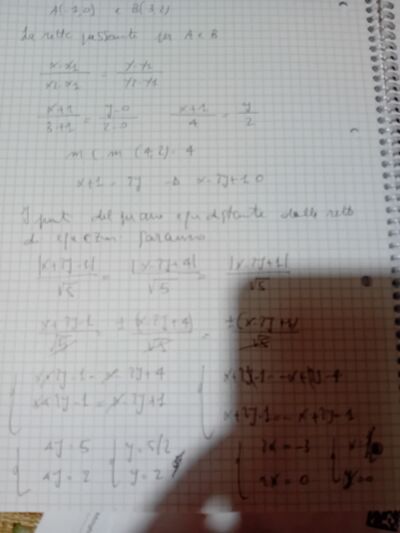 A(-1,0) e B(3,2)
La retta passante per A e B
x-x1 y-y1
x2-x1 y2-y1
x+1 / 3+1 = y-0 / 2-0 x+1 / 4 = y / 2
m c m (4,2)=4
x+1 = 2y x-2y+1 0
I punti del piano equidistante dalle rette
di equazioni saranno
|x+2y-1| / √5 = |x-2y+4| / √5 = |x-2y+1| / √5
x+2y-1 / √5 = ±(x-2y+4) / √5 = ±(x-2y+1) / √5
x+2y-1=x-2y+4 x+2y-1=-x+2y-4
x+2y-1=x-2y+1 x+2y-1=-x+2y-1
4y=5 y=5/2 2x=-3
4y=2 y=2 2x=0 y=0